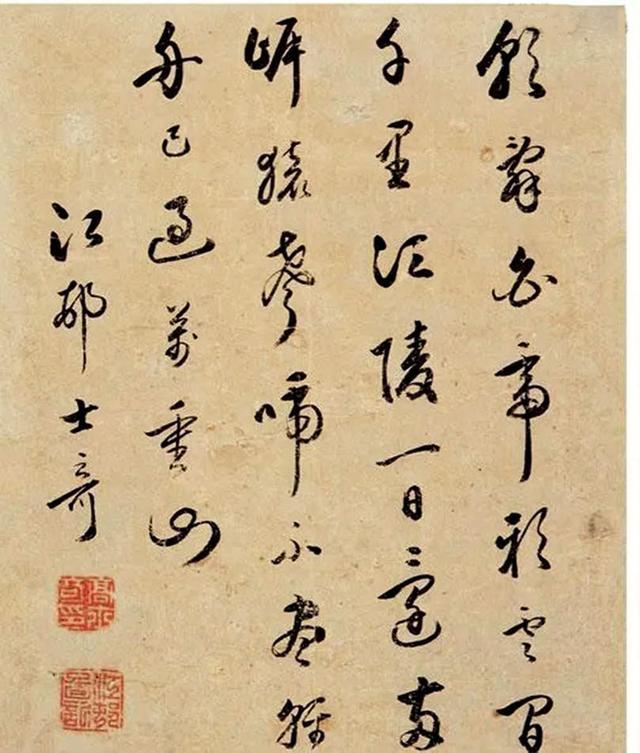 朝辭白帝彩雲間
千里江陵一日還兩
岸猿聲啼不盡輕
舟已過萬重山
江邨士奇
高士奇印